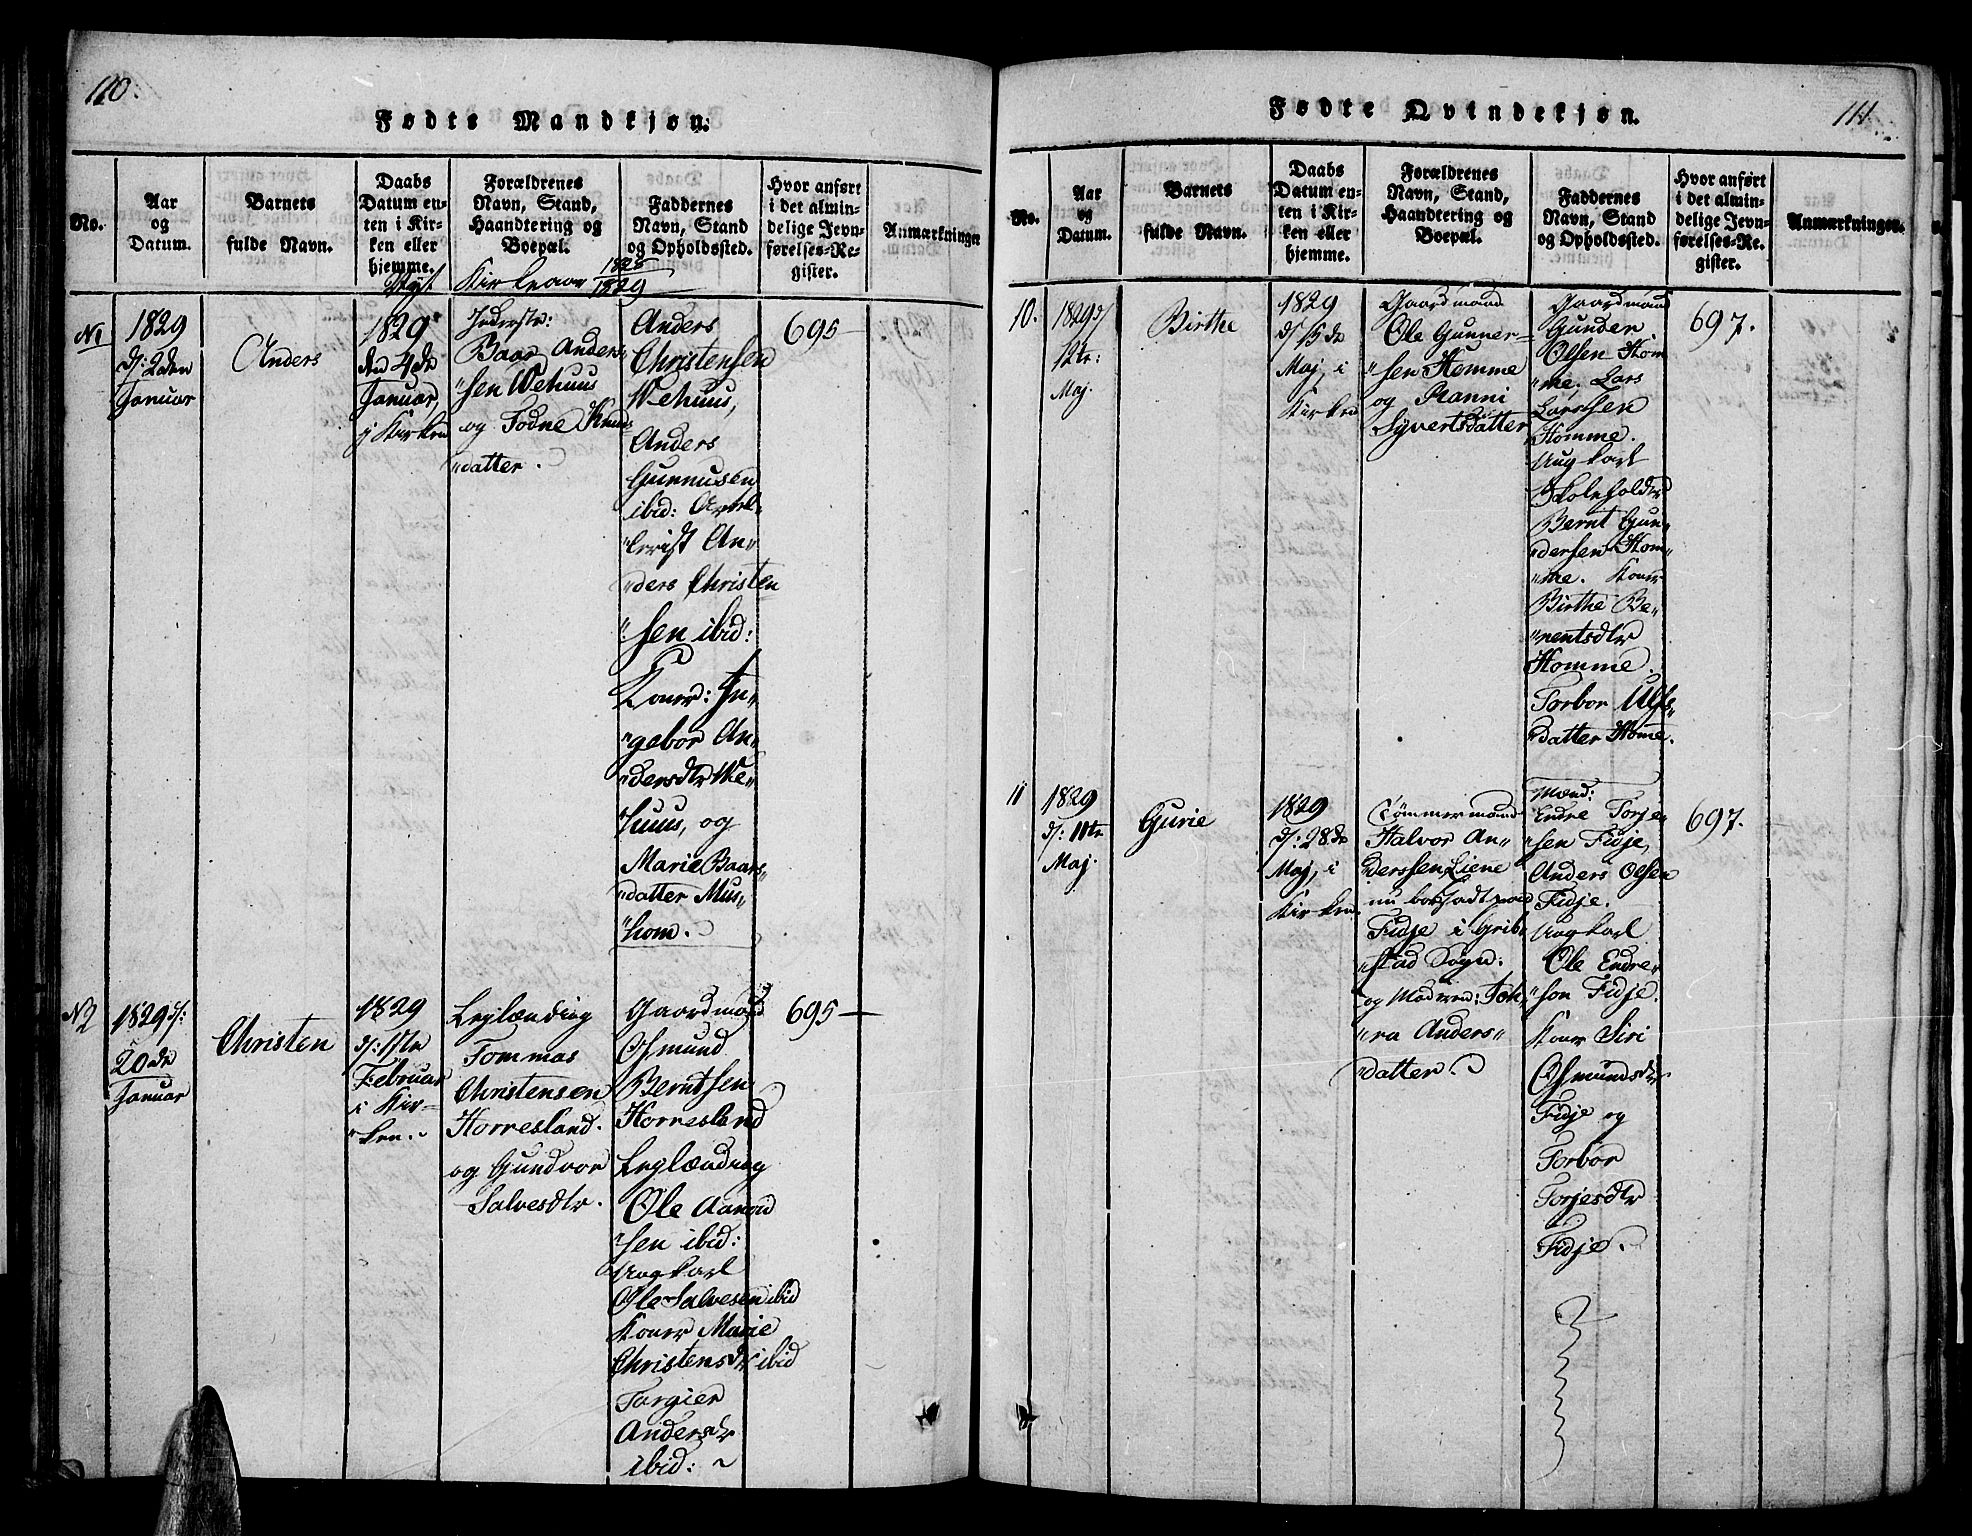 110.
Fødte Mandkjøn.
No.
Aar
og
Datum.
Barnets
fulde Navn.
Daabs
Datum en-
ten i Kir-
ken eller
hjemme.
Forældrenes
Navn, Stand,
Haandtering og
Boepæl.
Faddernes
Navn, Stand
og Opholdssted.
Hvor anført
i det almin-
delige Jevn-
førelses-Re-
gister.
Anmærkninger
Kirkeaar 1828
1829
No 1
1829
d: 2den
Januar
Anders
1829
den 4de
Januar,
i Kirken
Baar Anders-
"sen Wehuus
og Todne Knuds
"datter.
Anders
Christensen
Wehuus,
Anders
Gunnusen
ibid:
An-
"ders Christen
"sen ibid:
Koner: In-
"gebor An-
"dersdtr We-
"huus, og
Marie Baars-
"datter Mus-
"hom.
695
No 2
1829 d:
20de
Januar
Christen
1829
d: 11te
Februar
i Kir-
"ken.
Leylænding
Tommas
Christensen
Horresland.
og Gundvor
Salvesdtr.
Gaardmand
Osmund
Berntsen
Horresland
Leylænding
Ole Aanond
"sen ibid:
Ungkarl
Ole Salvesen ibid
Koner Marie
Christensdr ibid
Torgier
Andersdr
ibid:
695
111.
Fødte Qvindekjøn.
No.
Aar
og
Datum.
Barnets
fulde Navn.
Daabs
Datum en-
ten i Kir-
ken eller
hjemme.
Forældrenes
Navn, Stand,
Haandtering og
Boepæl.
Faddernes
Navn, Stand
og Opholdssted.
Hvor anført
i det almin-
delige Jevn-
førelses-Re-
gister.
Anmærkninger.
10.
1829 d
12te:
Maj.
Birthe
1829
d/ 15de
Maj, i
Kirken
Gaardmand
Ole Gunner-
"sen Homme
og Ranni
Syvertsdatter
Gaardmand
Gunder
Olsen Hom
"me. Lars
Larssen
Homme.
Ungkarl
Skoleholder
Bernt Gun-
"dersen Hom-
"me. Koner
Birthe Be-
"rentsdtr
Homme.
Torbor Ulfs-
"datter Home.
697.
11
1829
d/: 11te
Maj.
Gurie
1829
d/: 28de
Maj, i
Kirken.
Tømmermand
Halvor An-
"derssen Liene
nu bosadt paa
Fidje i Grib-
"stad Sogn:
og Moderen: Toh-
"ra Anders-
"datter.
Mænd:
Endre Torje-
"sen Fidje,
Anders Olsen
Fidje.
Ungkarl
Ole Endre-
"son Fidje.
Koner Siri
Osmundsdtr
Fidje og
Torbor
Torjesdtr
Fidje.
697.